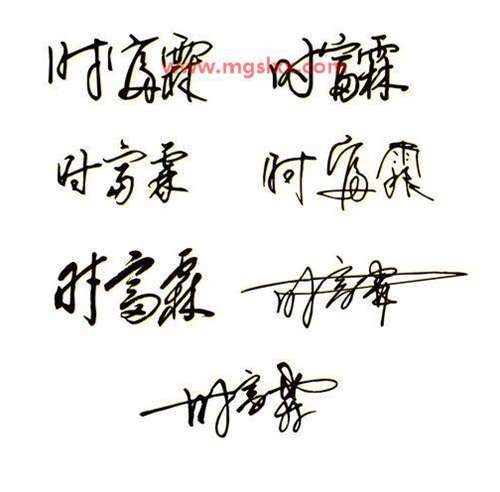 时富霖 时富霖
时富霖 时富霖
时富霖 时富霖
时富霖